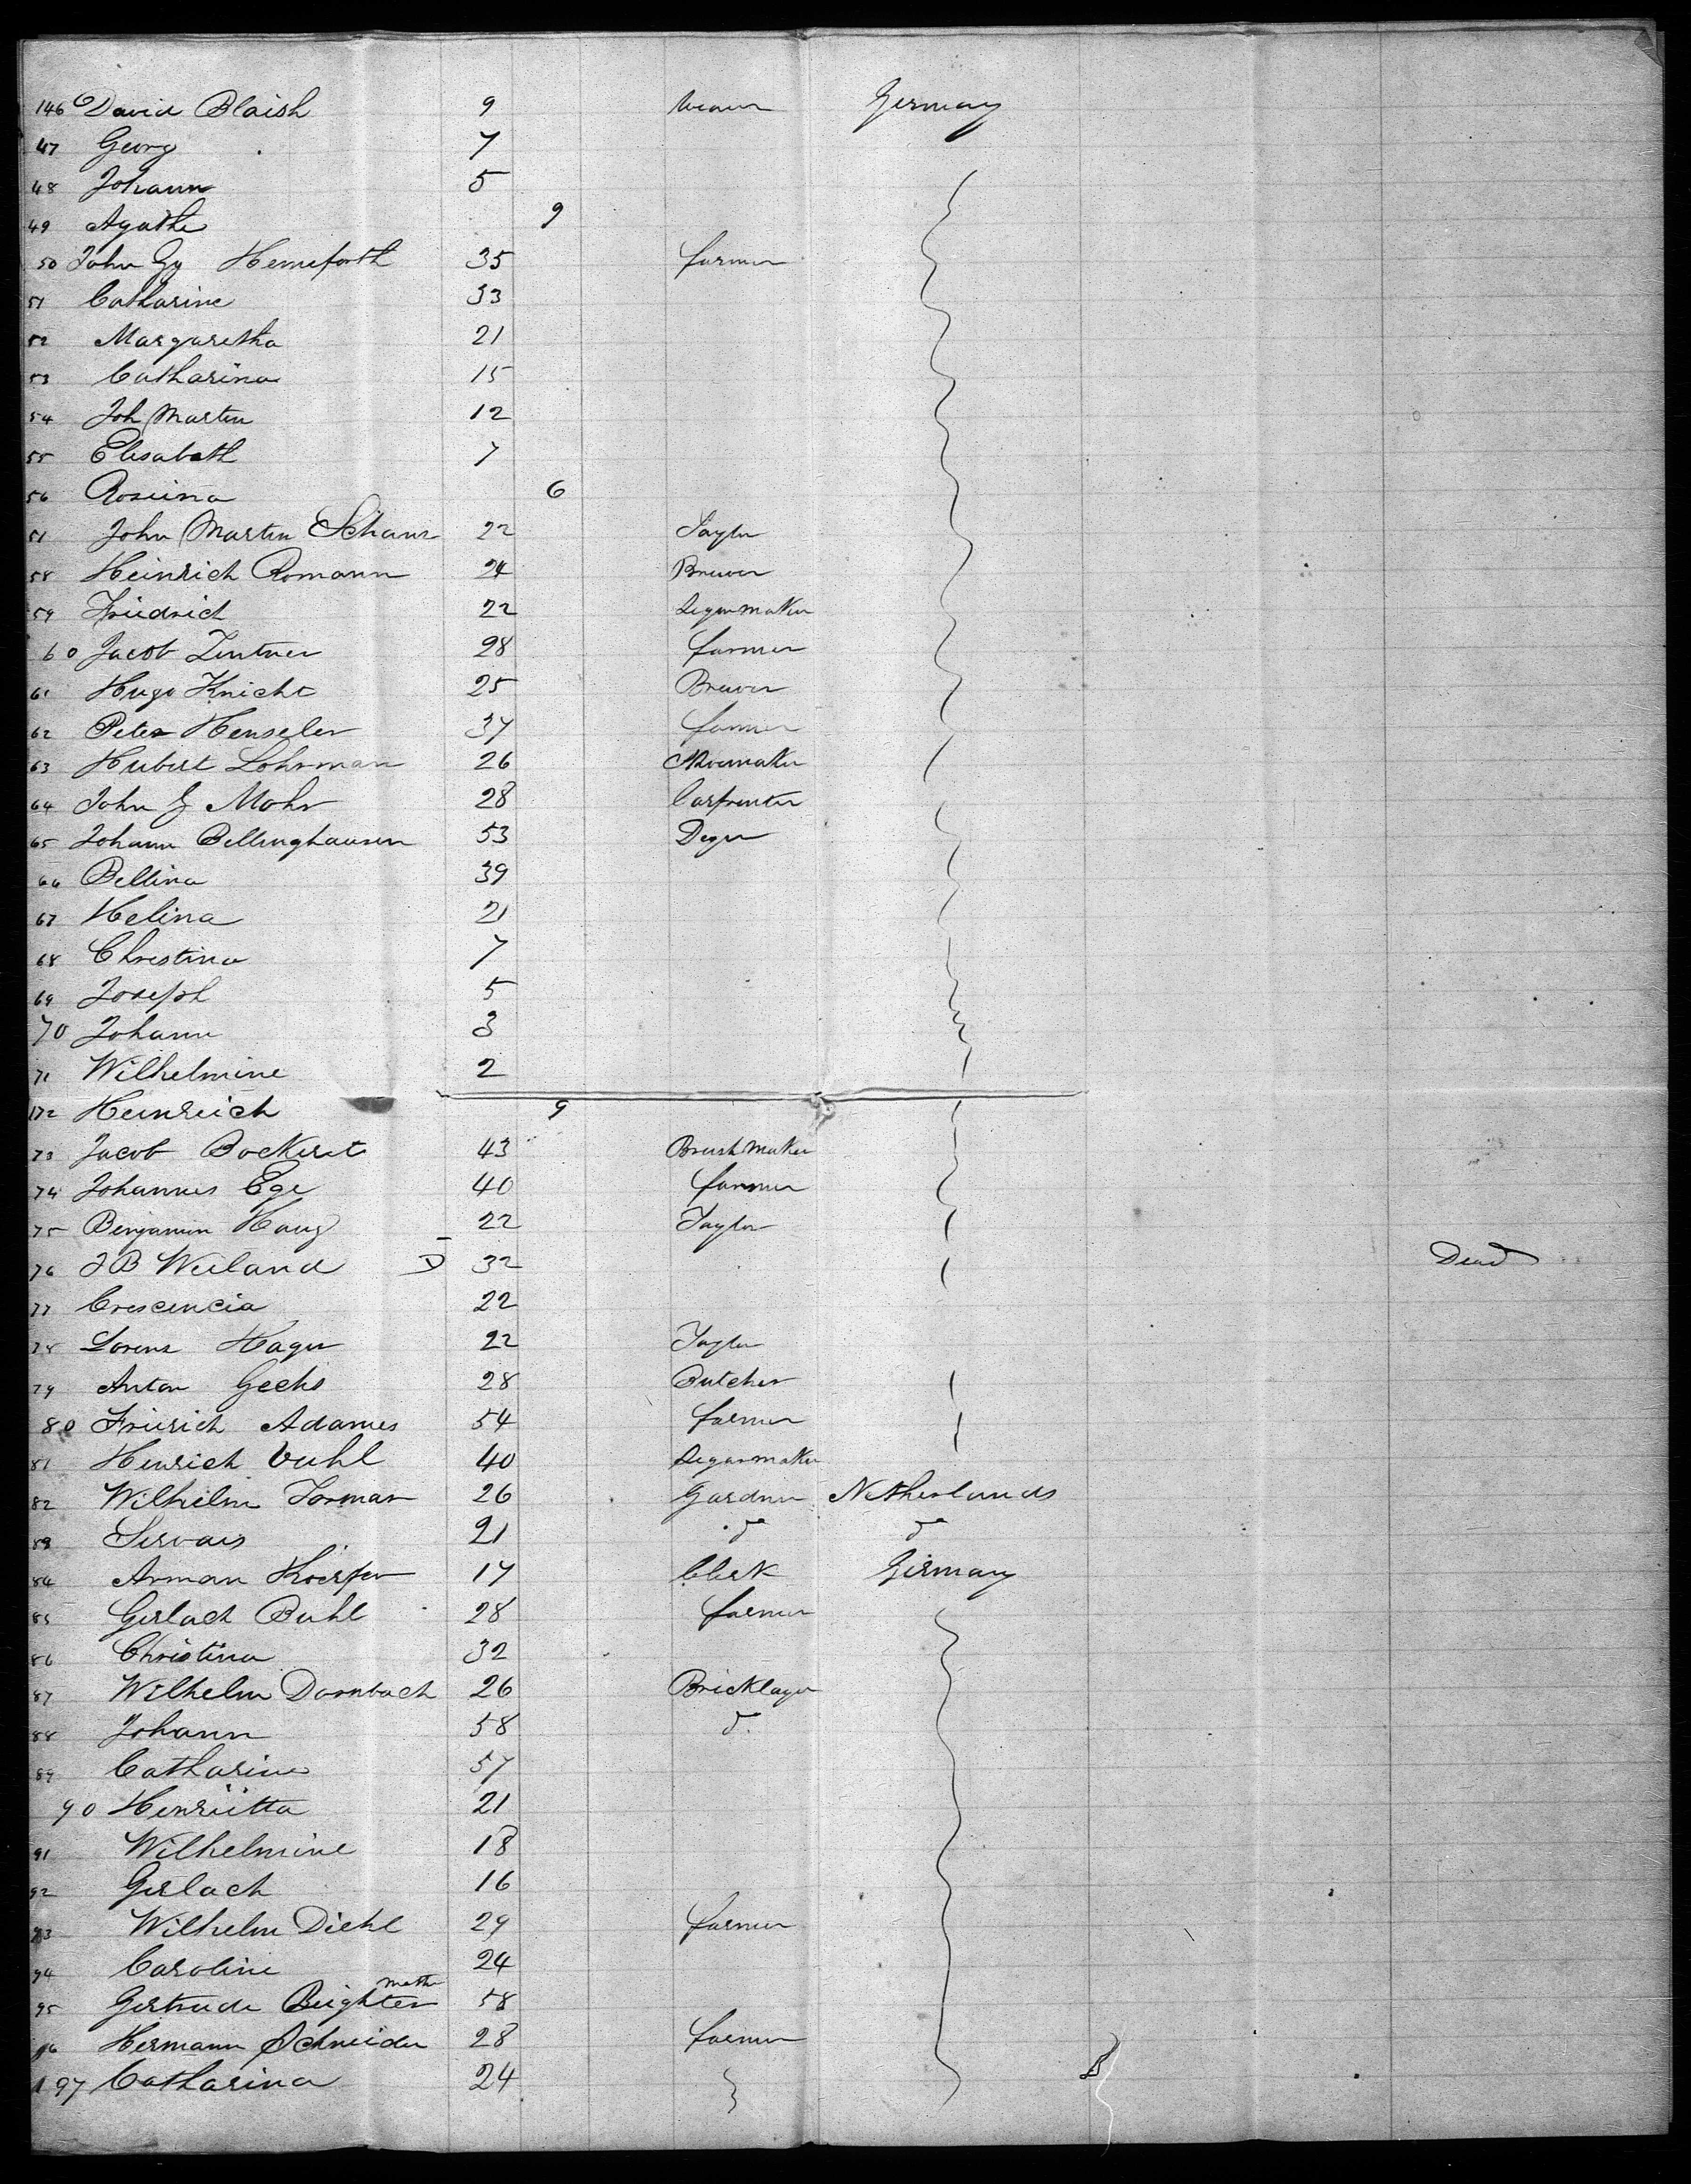 146 David Blaish 9 Weaver Germany
47 Georg 7
48 Johann 5
49 Agathe 9
50 John Gg Hemeforth 35 farmer
51 Catharine 33
52 Margaretha 21
53 Catharina 15
54 Joh Martin 12
55 Elisabeth 7
56 Rosina 6
57 John Martin Schanz 22 Taylor
58 Heinrich Romann 24 Brewer
59 Friedrich 22 Segarmaker
60 Jacob Zentner 28 farmer
61 Hugo Knicht 25 Brewer
62 Peter Henseler 37 farmer
63 Hubert Lohrman 26 Shoemaker
64 John G Mohr 28 Carpenter
65 Johann Bellinghausen 53 Dyer
66 Bellina 39
67 Helina 21
68 Christina 7
69 Joseph 5
70 Johann 3
71 Wilhelmine 2
172 Heinreich 9
73 Jacob Bockert 43 Brushmaker
74 Johannes Ege 40 farmer
75 Benjamin Haug 22 Taylor
76 J B Weiland D 32 Dead
77 Crescencia 22
78 Lorenz Hager 22 Taylor
79 Anton Gechs 28 Butcher
80 Frierich Adames 54 farmer
81 Henrich Vuhl 40 Segarmaker
82 Wilhelm Forman 26 Gardner Netherlands
83 Servais 21 do do
84 Arman Koerfer 17 Clerk Germany
85 Gerlach Buhl 28 farmer
86 Christina 32
87 Wilhelm Dornbach 26 Bricklayer
88 Johann 58 d.
89 Catharine 57
90 Henrietta 21
91 Wilhelmine 18
92 Gerlach 16
93 Wilhelm Diehl 29 farmer
94 Caroline 24
95 Gertrude Beighter mother 58
96 Hermann Schneider 28 farmer
197 Catharina 24